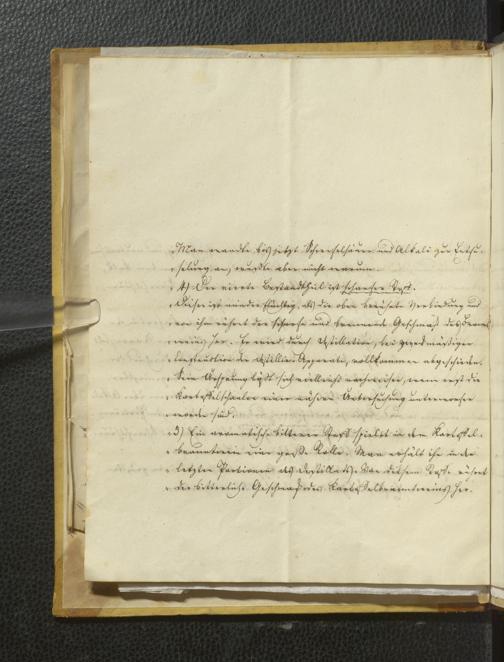 „Man wandte bis jetzt Schwefelsäure und Alkali zur Entfu-
„selung an, wußte aber nicht warum.
„4) Der vierte Bestandtheil ist scharfer Stoff.
„Dieser ist minder flüchtig, als die oben berührte Verbindung und
„von ihm rührt der scharfe und brennende Geschmack des Brannt-
„weins her. Er wird durch Destillation, bei zweckmäßiger
„Construktion der Destillir-Apparate, vollkommen abgeschieden.
„Sein Ursprung läßt sich vielleicht nachweisen, wenn erst die
„Kartoffelschaalen einer nähern Untersuchung unterworfen
„worden sind.
„5) Ein aromatisch bitterer Stoff spielt in dem Kartoffel-
„branntwein eine große Rolle. Man erhält ihn in der
„letzten Portionen des Destillats. Von diesem Stoffe rührt
„der bitterliche Geschmack des Kartoffelbranntweins her.